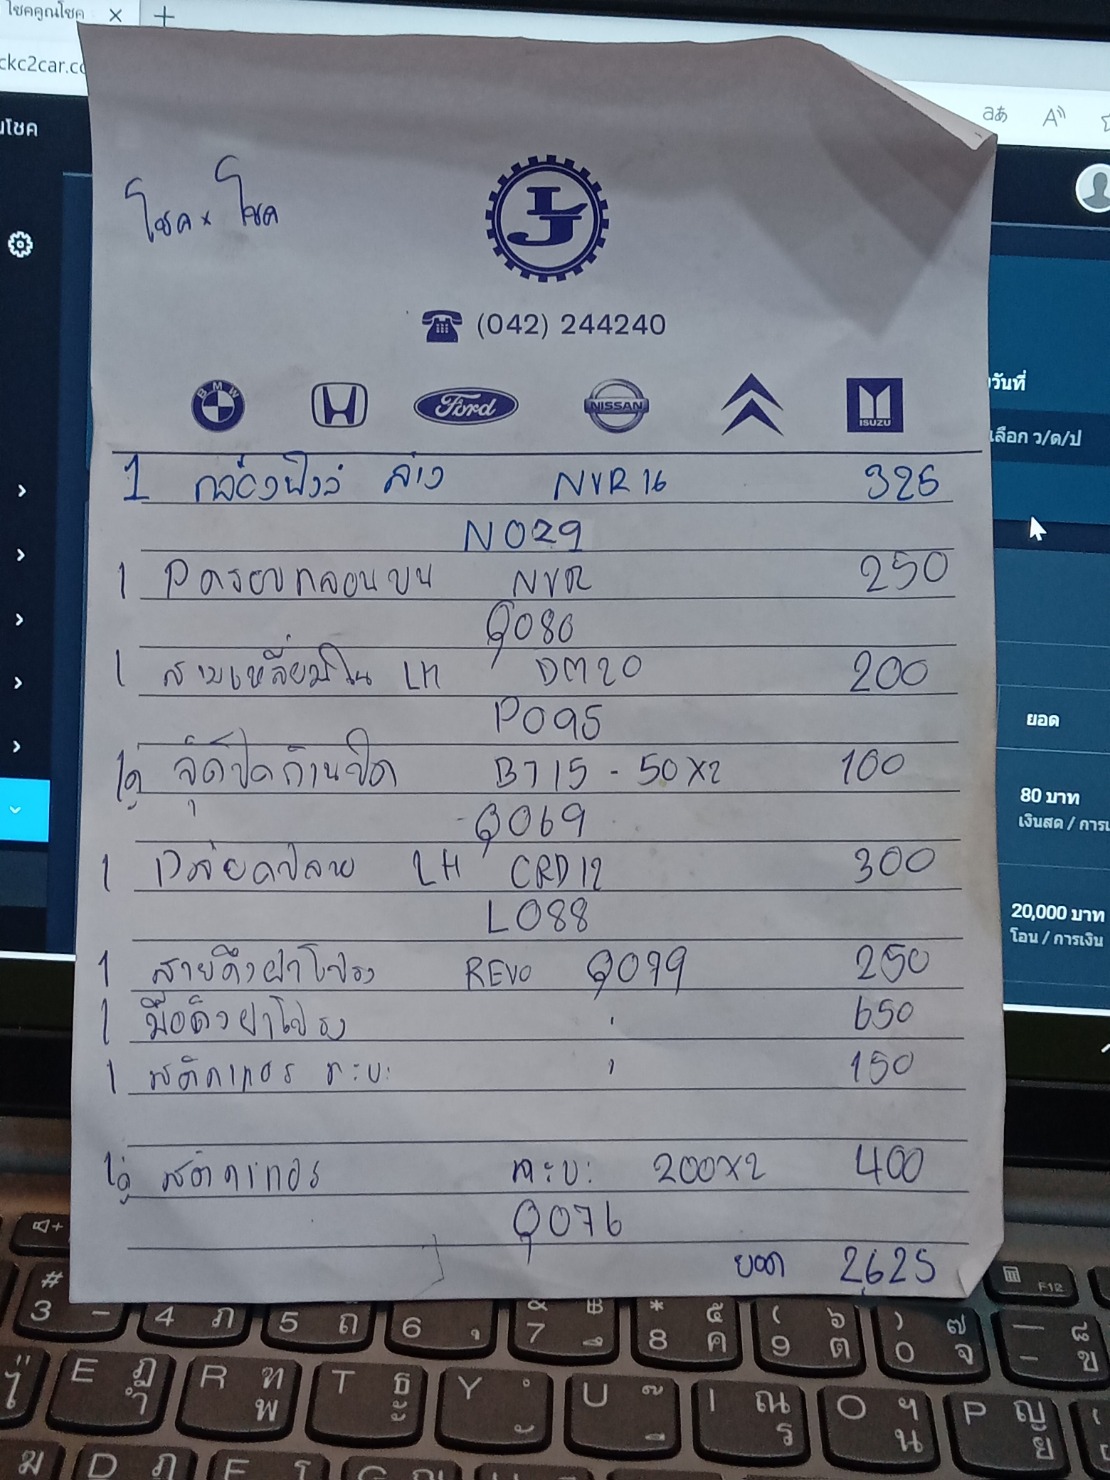 โชคคูณโชค
ckc2car.co
นโชค
โชค x โชค
LJ
(042) 244240
BMW
Ford
NISSAN
ISUZU
วันที่
เลือก ว/ด/ป
1 กล่องฟิวส์ ล่าง NVR 16 325
N029
1 ครอบกลอนบน NVR 250
Q080
1 สามเหลี่ยมใน LH DM20 200
P095
1คู่ จุ๊ดปิดก้านปัด B715 - 50x2 100
Q069
1 LH CRD12 300
L088
1 สายดึงฝาโปรง REVO Q079 250
1 มือดึงฝาโปรง " 650
1 สติกเกอร กะบะ " 150
1คู่ สติกเกอร กะบะ 200x2 400
Q076
ยอด 2625
ยอด
80 บาท
เงินสด / การเ
20,000 บาท
โอน / การเงิน
F12
# 3 - 4 ภ 5 ถ 6 ุ & 7 ึ * 8 ค ( 9 ต ) 0 จ - ข
E R พ T U I ร O น P ย
D F